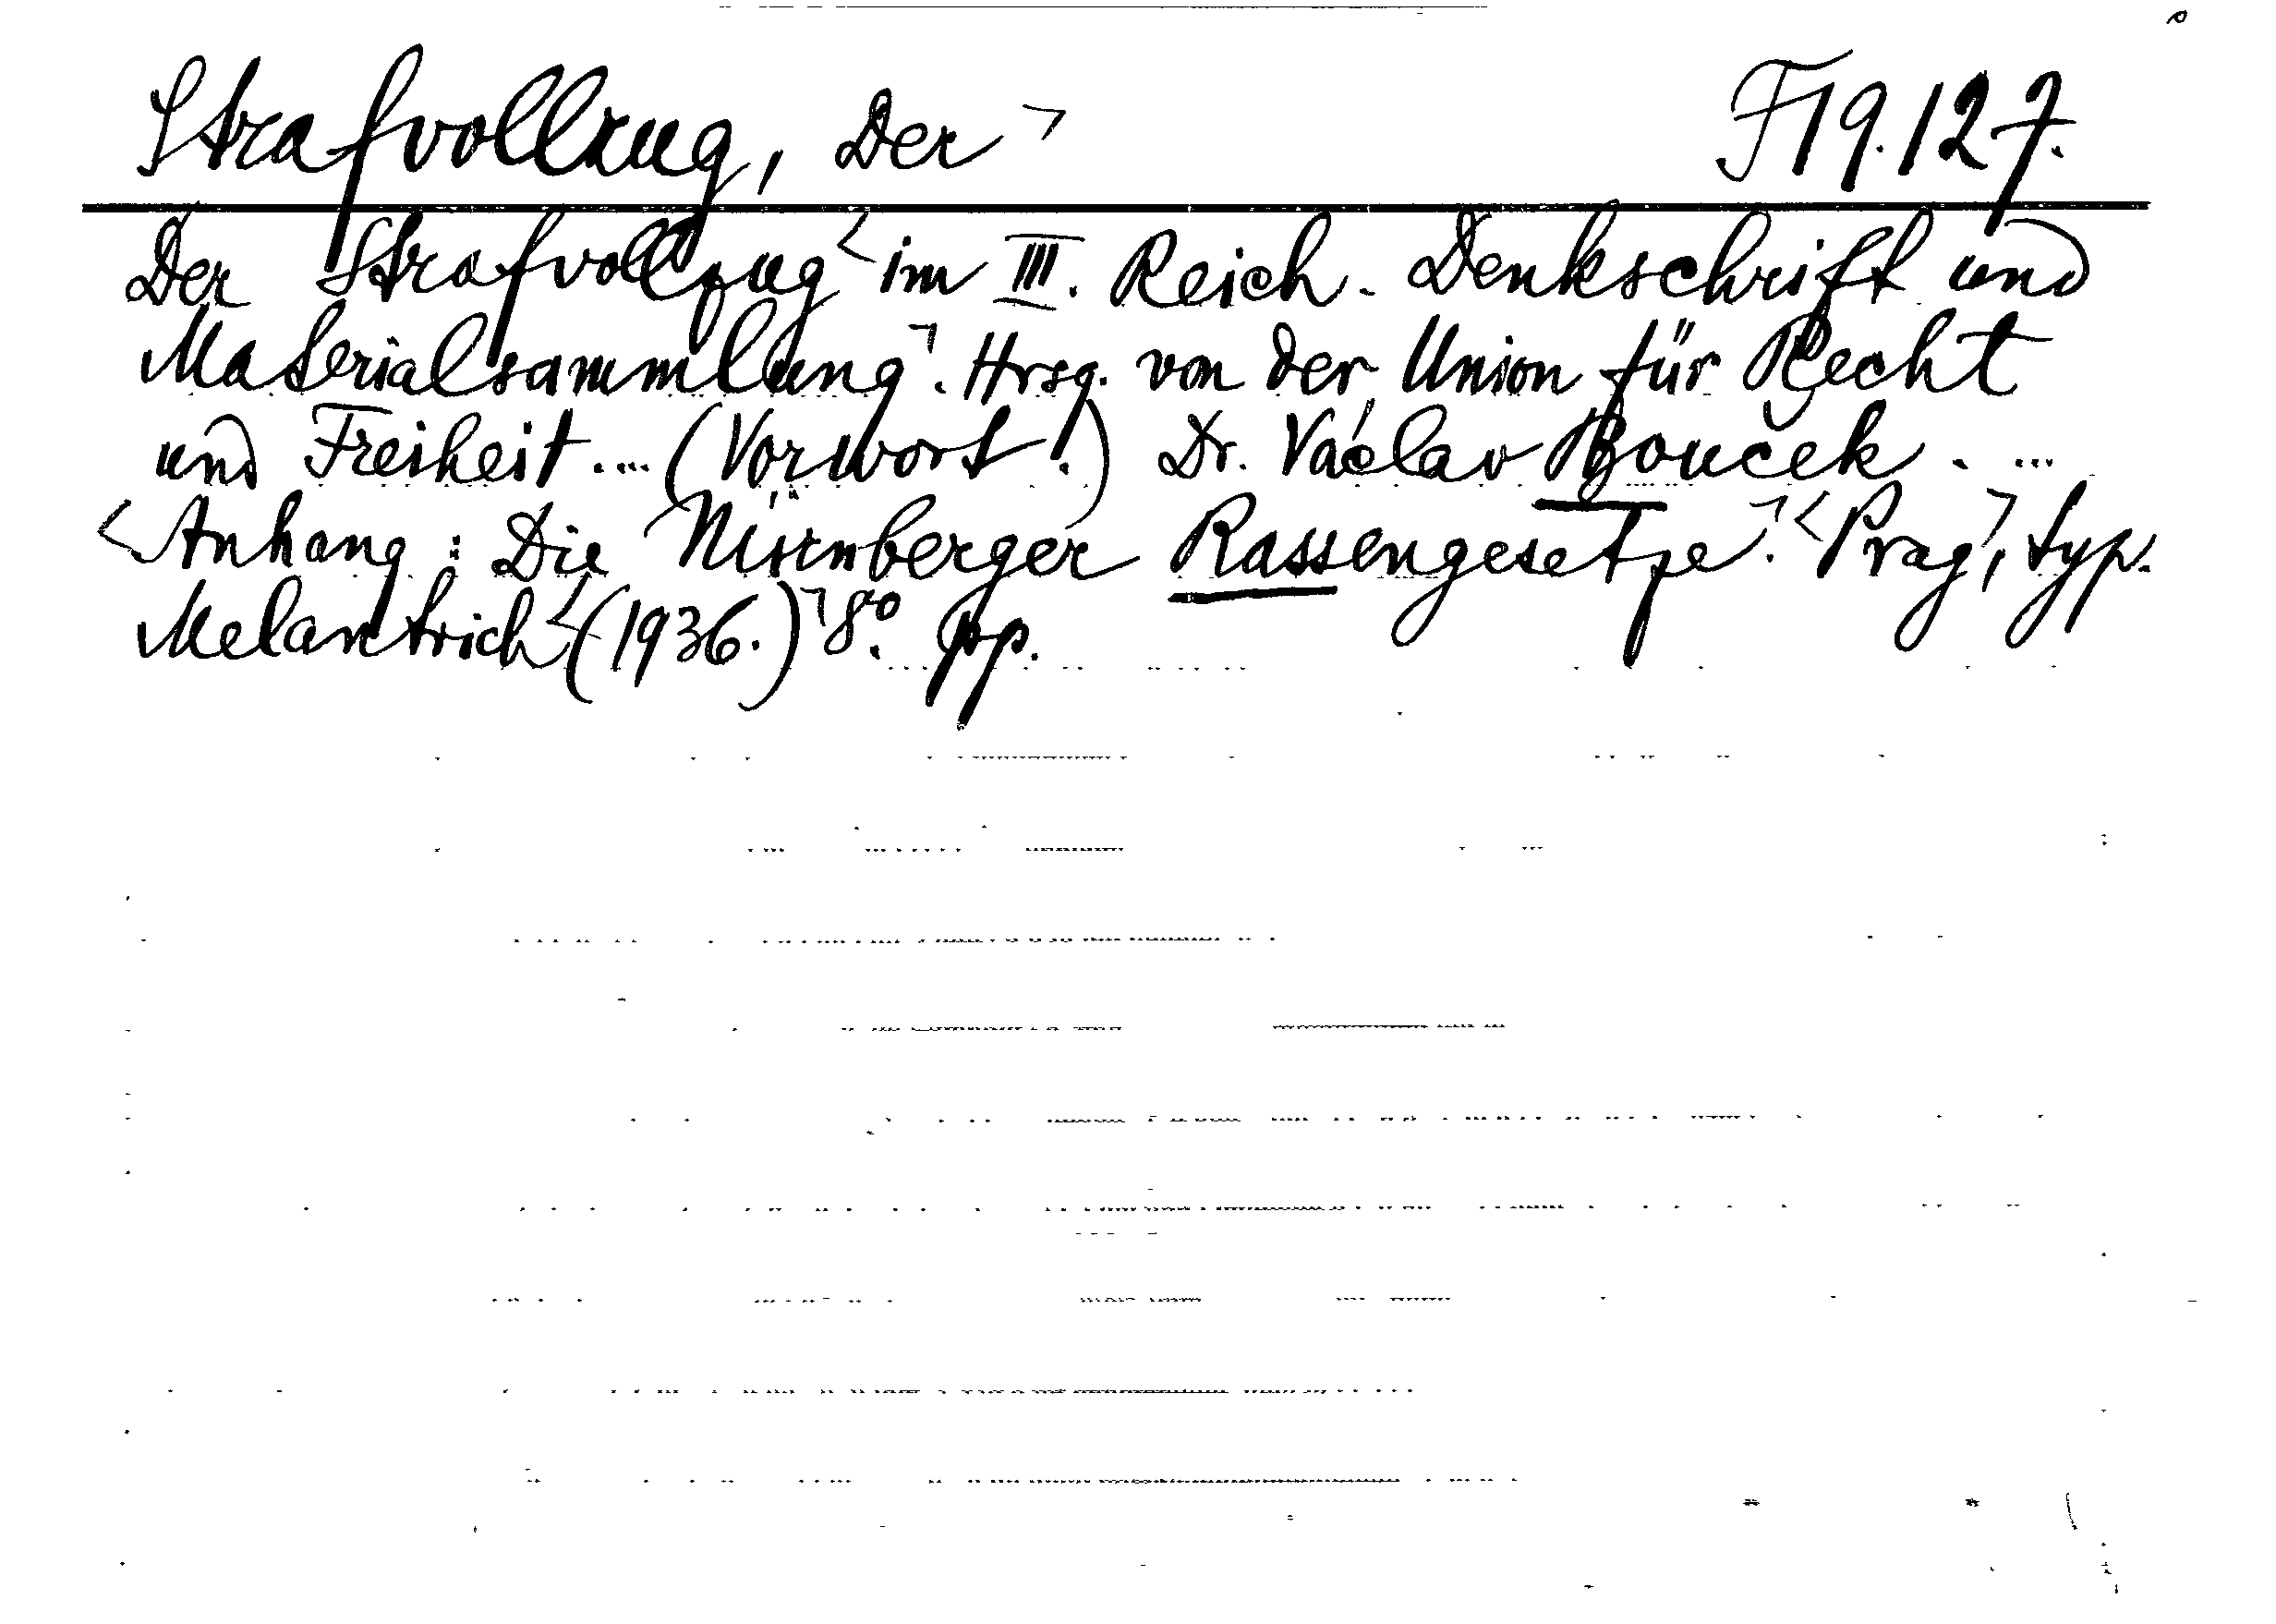 Strafvollzug, Der ¬ F19.127.
Der Strafvollzug < im III. Reich. Denkschrift und
Materialsammlung ¬. Hrsg. von der Union für Recht
und Freiheit.... (Vorwort:) Dr. Václav Bouček. ...
< Anhang: Die Nürnberger Rassengesetze. ¬ < Prag ¬, typ.
Melantrich < (1936.) ¬ 8°. pp.